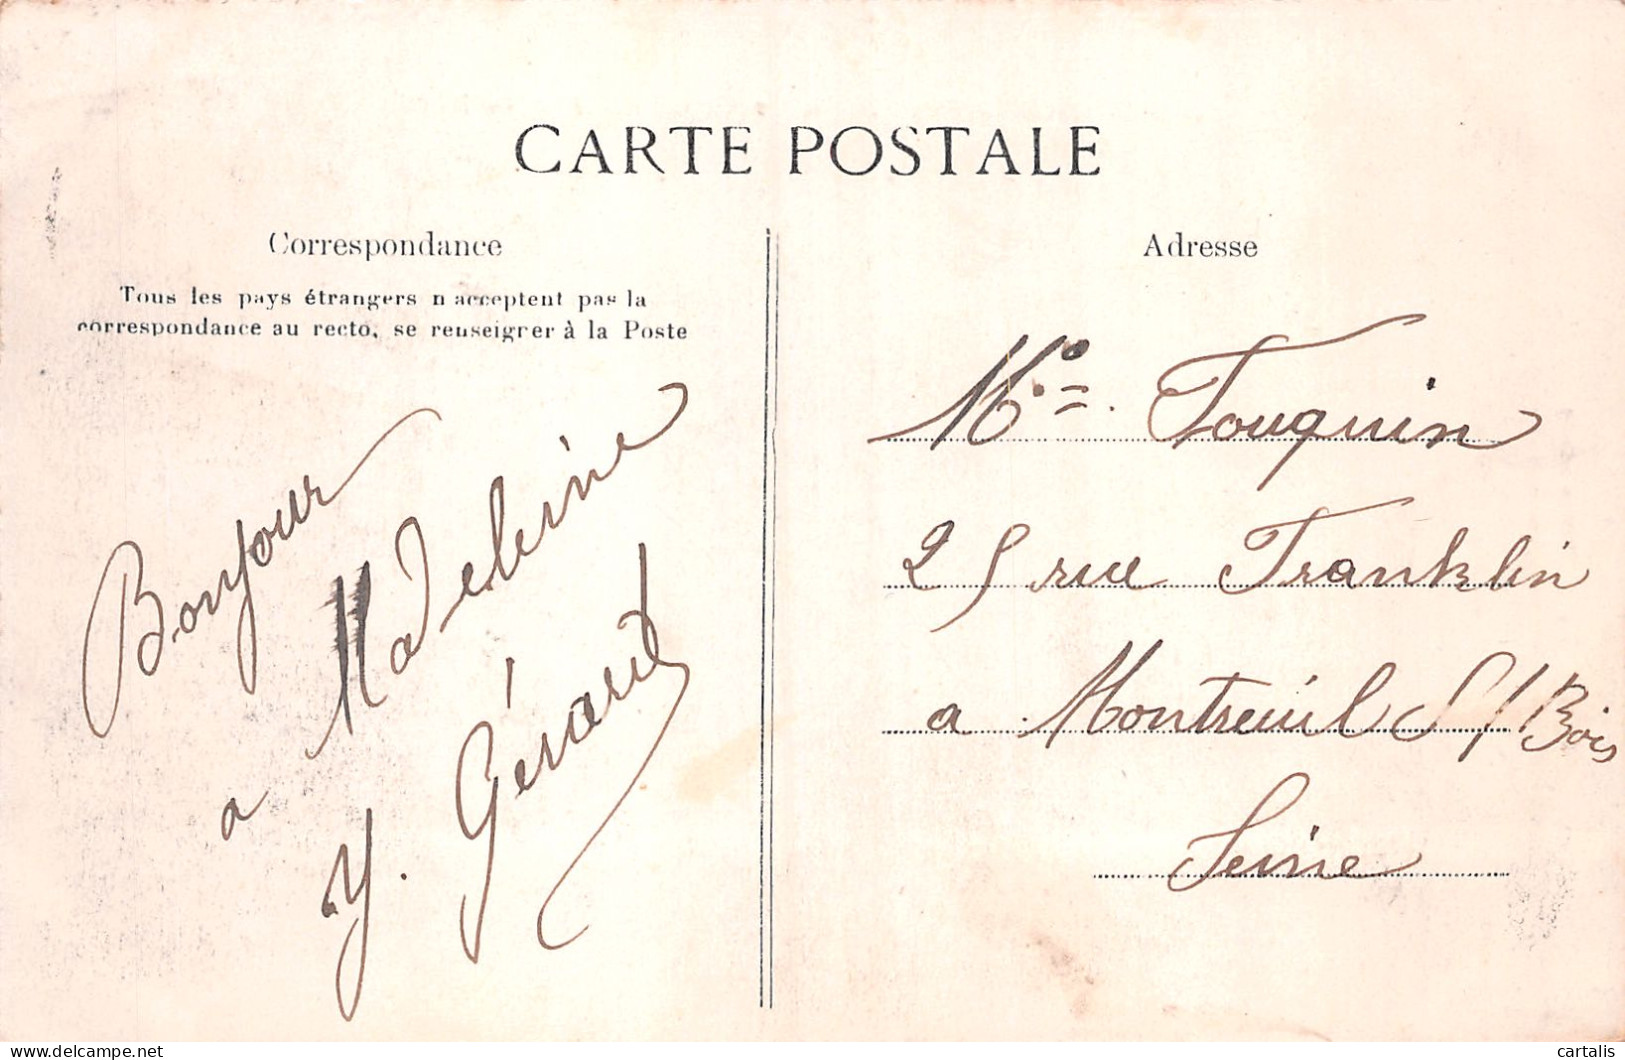 CARTE POSTALE
Correspondance
Tous les pays étrangers n acceptent pas la
correspondance au recto, se renseigner à la Poste
Bonjour
a Madeleine
Y. Gérard
Adresse
Touquin
25 rue Franklin
a Montreuil S/Bois
Seine
delcampe.net
cartalis